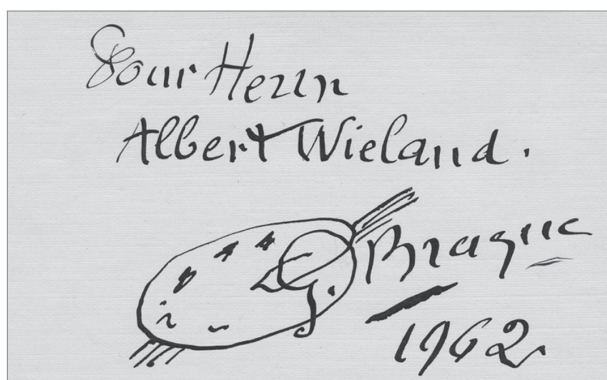 Pour Herrn
Albert Wieland.
G. Braque
1962